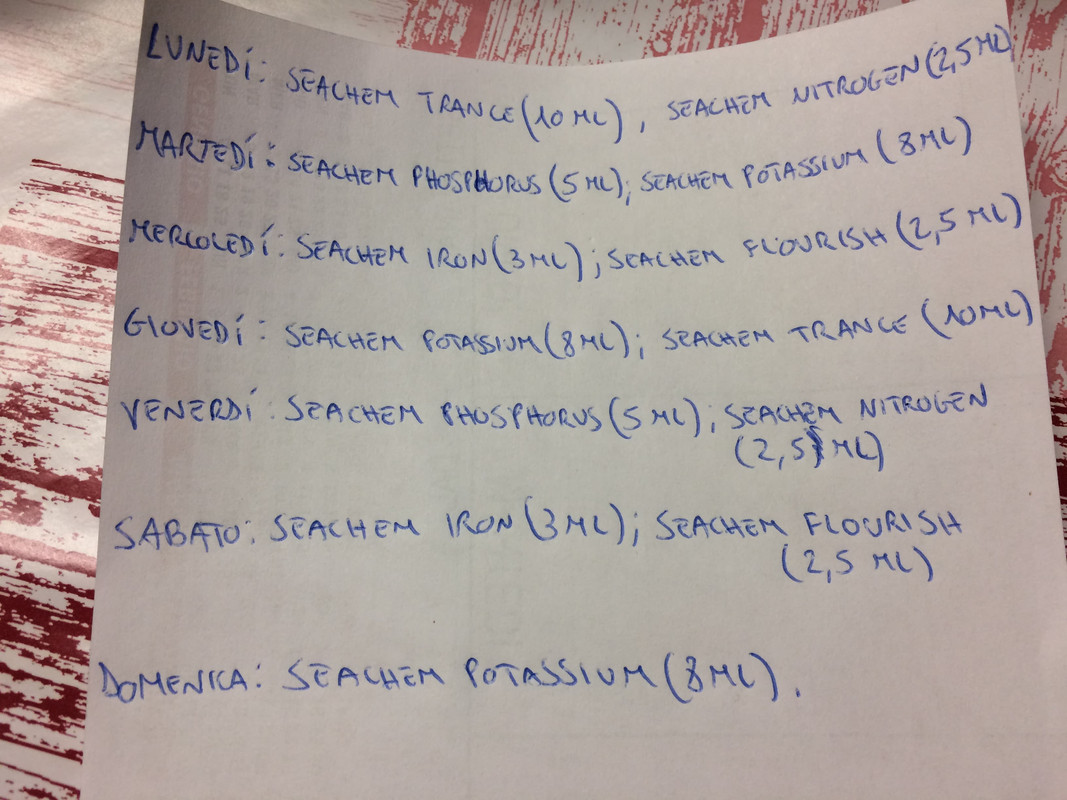 LUNEDÍ: SEACHEM TRANCE (10 ML), SEACHEM NITROGEN (2,5 ML)
MARTEDÍ: SEACHEM PHOSPHORUS (5 ML); SEACHEM POTASSIUM (8 ML)
MERCOLEDÍ: SEACHEM IRON (3 ML); SEACHEM FLOURISH (2,5 ML)
GIOVEDÍ: SEACHEM POTASSIUM (8 ML); SEACHEM TRANCE (10 ML)
VENERDÍ: SEACHEM PHOSPHORUS (5 ML); SEACHEM NITROGEN
(2,5 ML)
SABATO: SEACHEM IRON (3 ML); SEACHEM FLOURISH
(2,5 ML)
DOMENICA: SEACHEM POTASSIUM (8 ML).